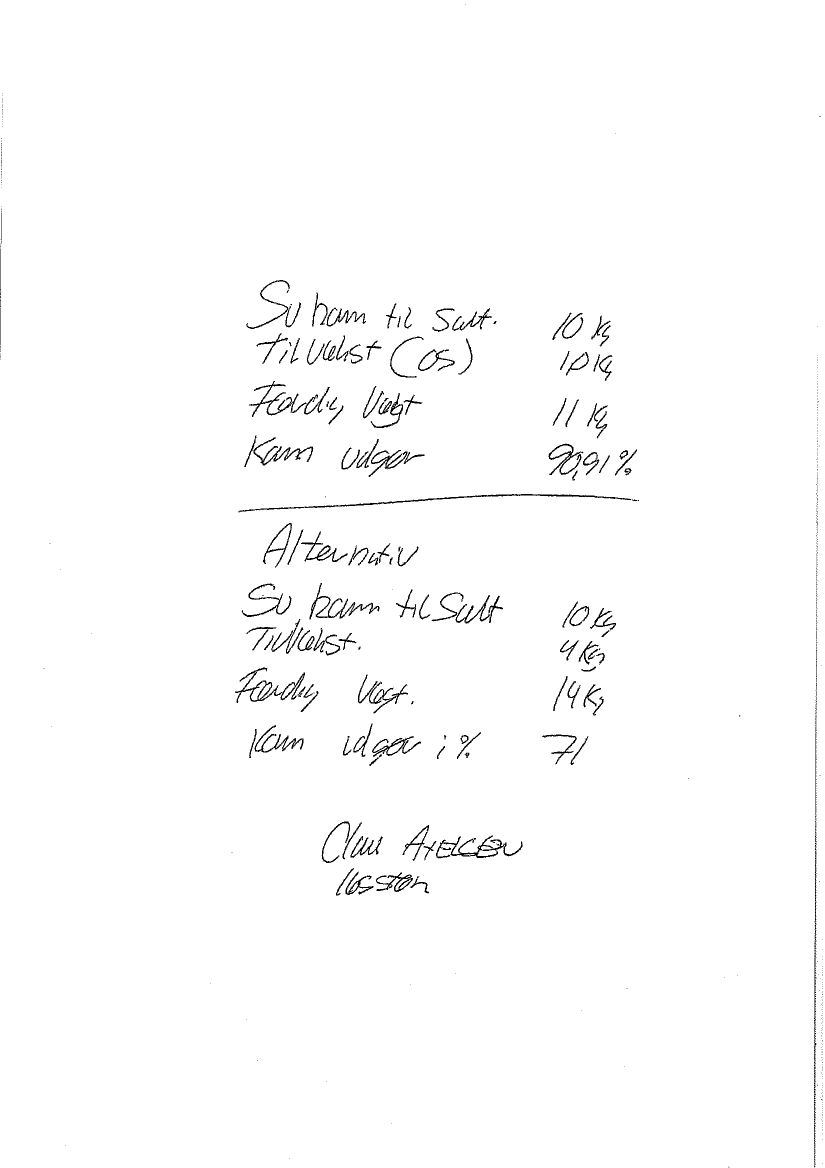 Sv kam til Salt. 10 kg
Tilvekst (OS) 1,0 kg
Færdig Vægt 11 kg
Kam udgør 90,91 %
Alternativ
Sv, kam til Salt 10 kg
Tilvekst. 4 kg
Færdig Vægt. 14 kg
Kam udgør i % 71
Claus AXELSEN